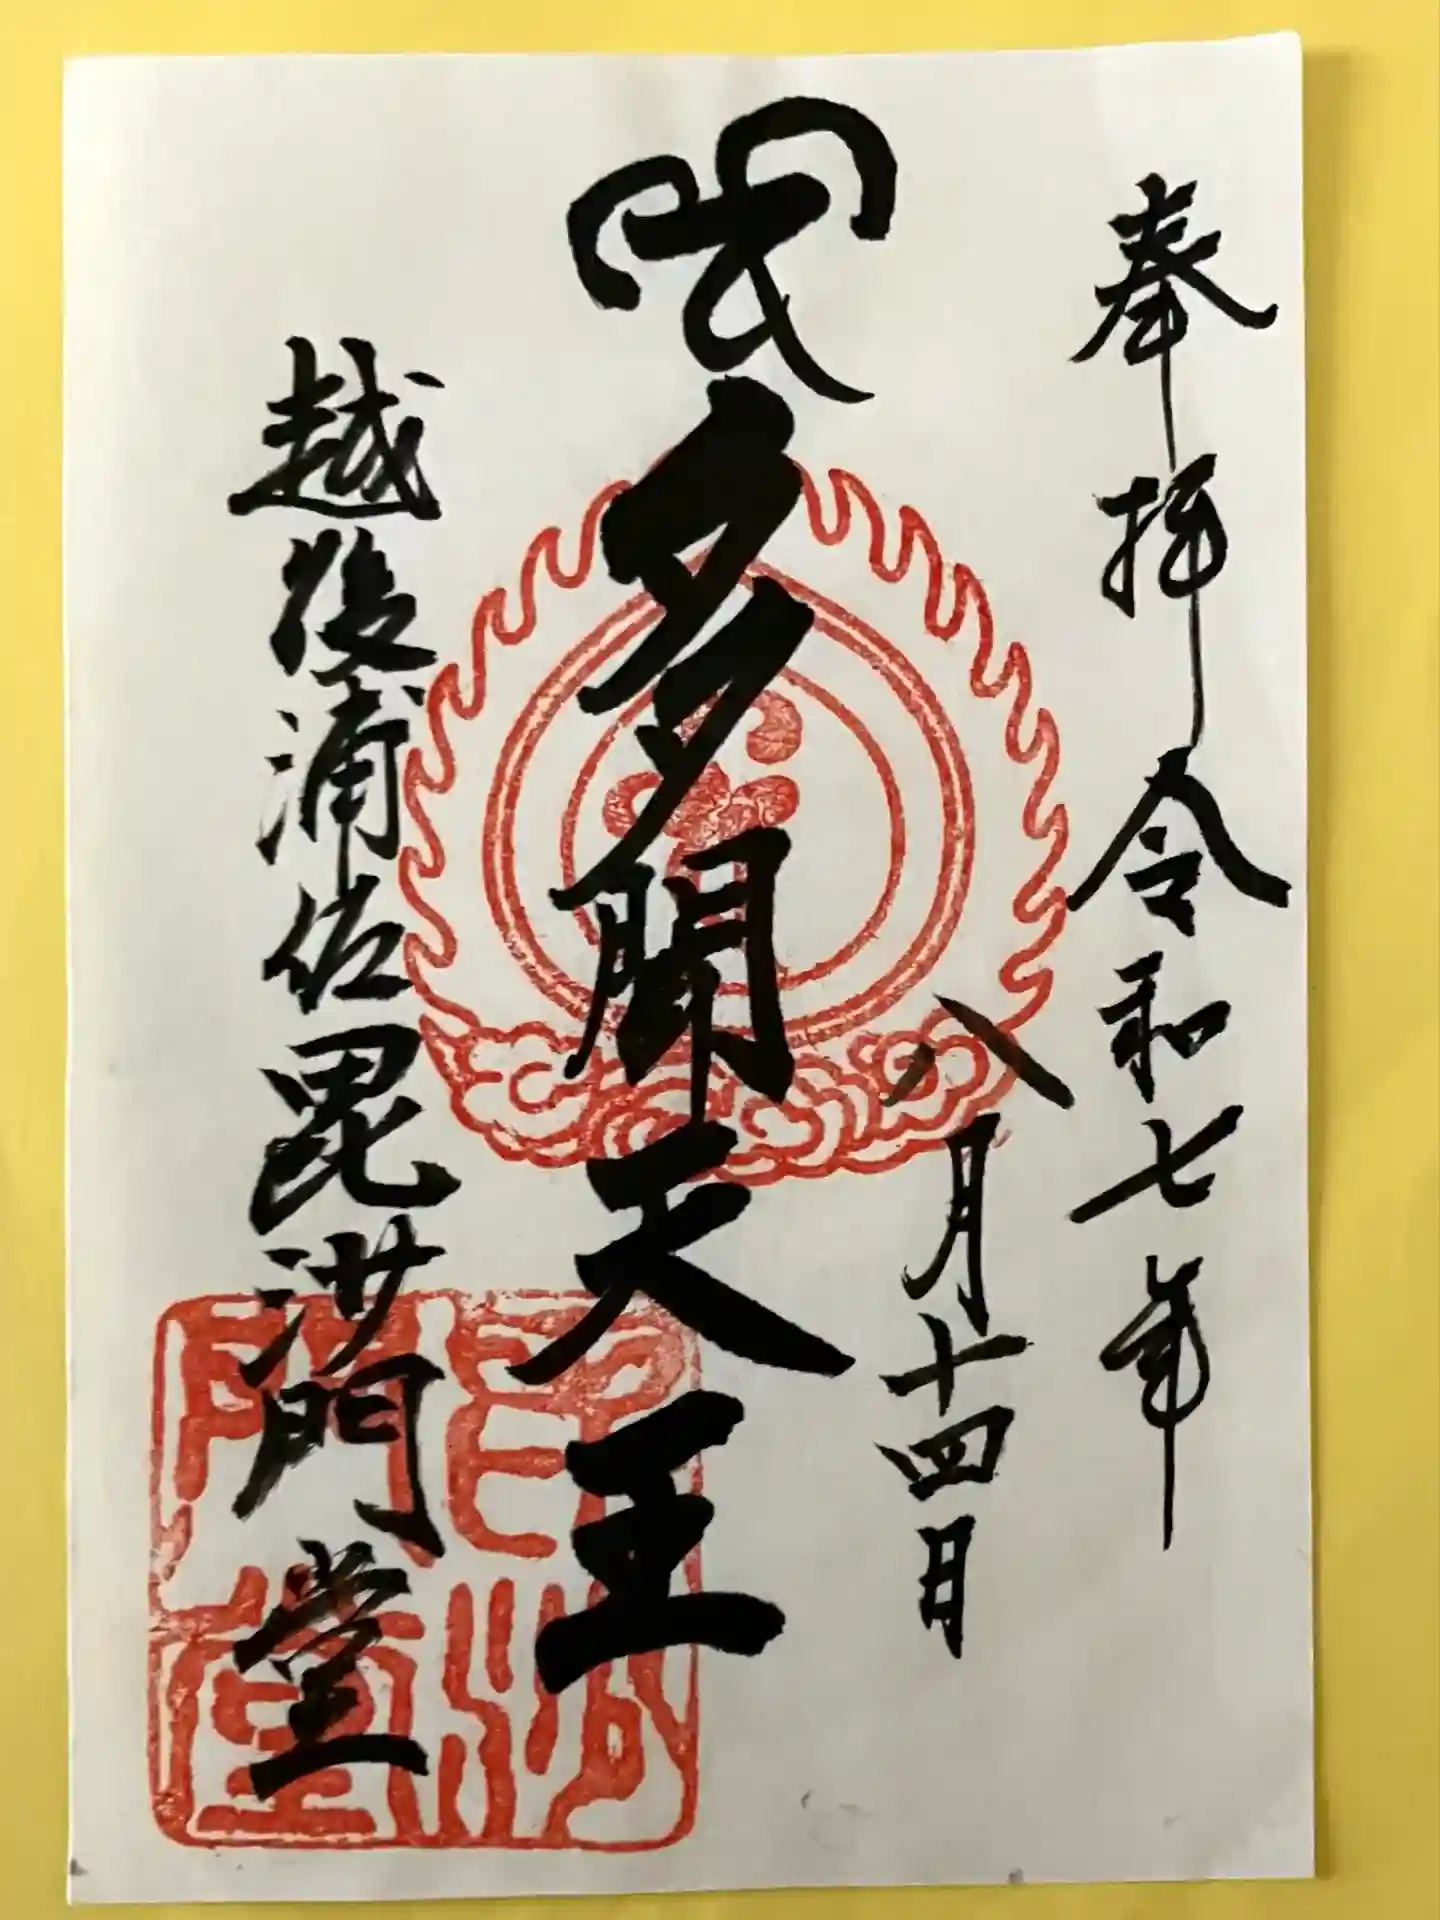 奉拝 令和七年
八月十四日
多聞天王
越後浦佐毘沙門堂
毘沙門堂